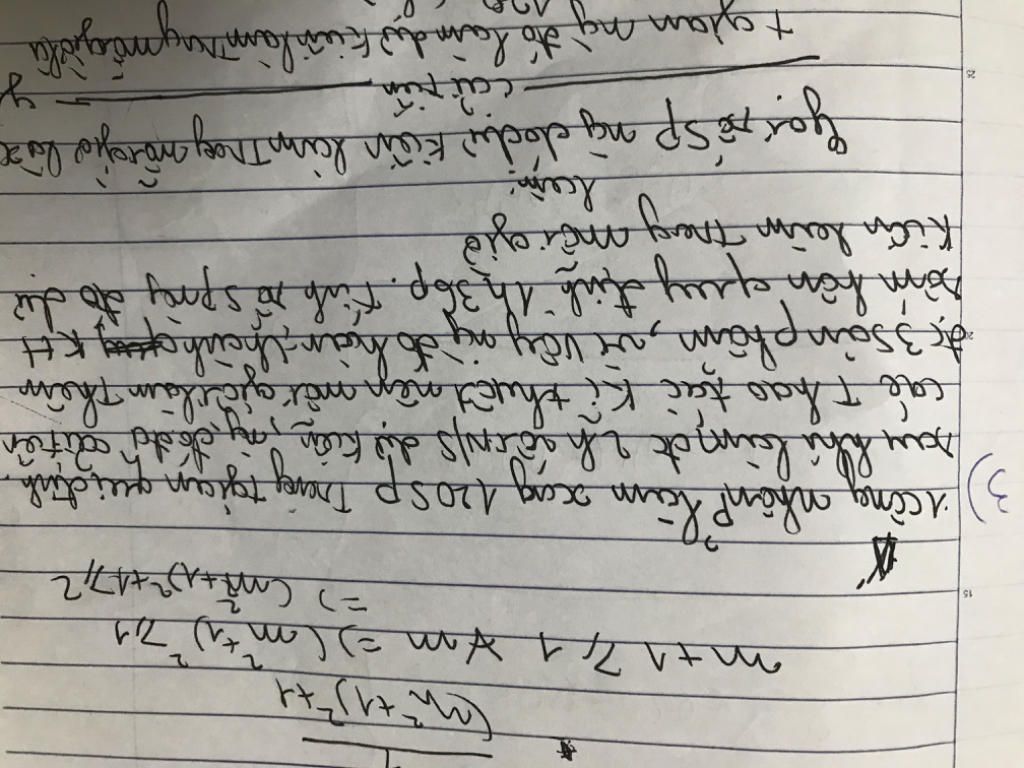 (m²+1)²+1
m+1 ⩾ 1 ∀m ⇒ (m²+1)² ⩾ 1
⇒ (m²+1)²+1 ⩾ 2
15
3) 1 công nhân phải làm xong 120 SP Trong tgian qui định.
sau khi làm đc 2h n/s dự kiến, ng đó đã cải tiến
các Thao tác kĩ thuật nên mỗi giờ làm Thêm
đc 3 sản phẩm, vì vậy ng đó hoàn thành KH
20
sớm hơn quy định 1h 36p. Tính số SP ng đó dự
kiến làm Trong mỗi giờ
Giải:
Gọi số SP ng đó dự kiến làm Trong mỗi giờ là x
cải tiến y
25
t gian ng đó làm dự kiến làm Trong mỗi giờ là
120